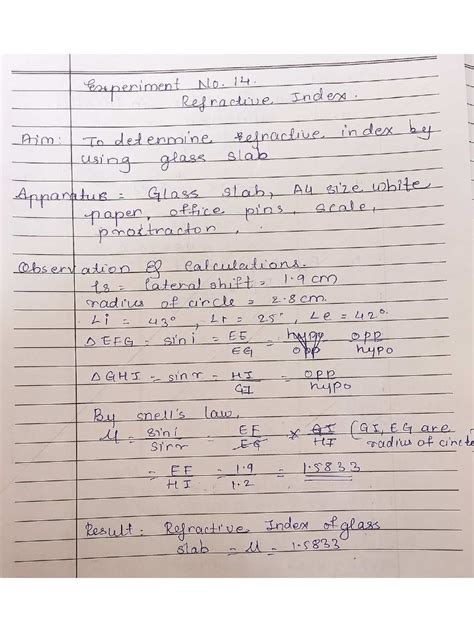 Experiment No. 14.
Refractive Index.
Aim: To determine refractive index by
using glass slab
Apparatus = Glass slab, A4 size white
paper, office pins, scale,
proxtractor, .
Observation & Calculations.
ls = lateral shift = 1.9 cm
radius of circle = 2.8 cm.
Li = 43°, Lr = 25°, Le = 42°.
Δ EFG = sin i = EF/EG = opp/hypo
Δ GHI = sin r = HI/GI = opp/hypo
By snell's law,
μ = sin i/sin r = EF/EG × GI/HI (GI, EG are radius of circle
= EF/HI = 1.9/1.2 = 1.5833
Result: Refractive Index of glass
slab = μ = 1.5833